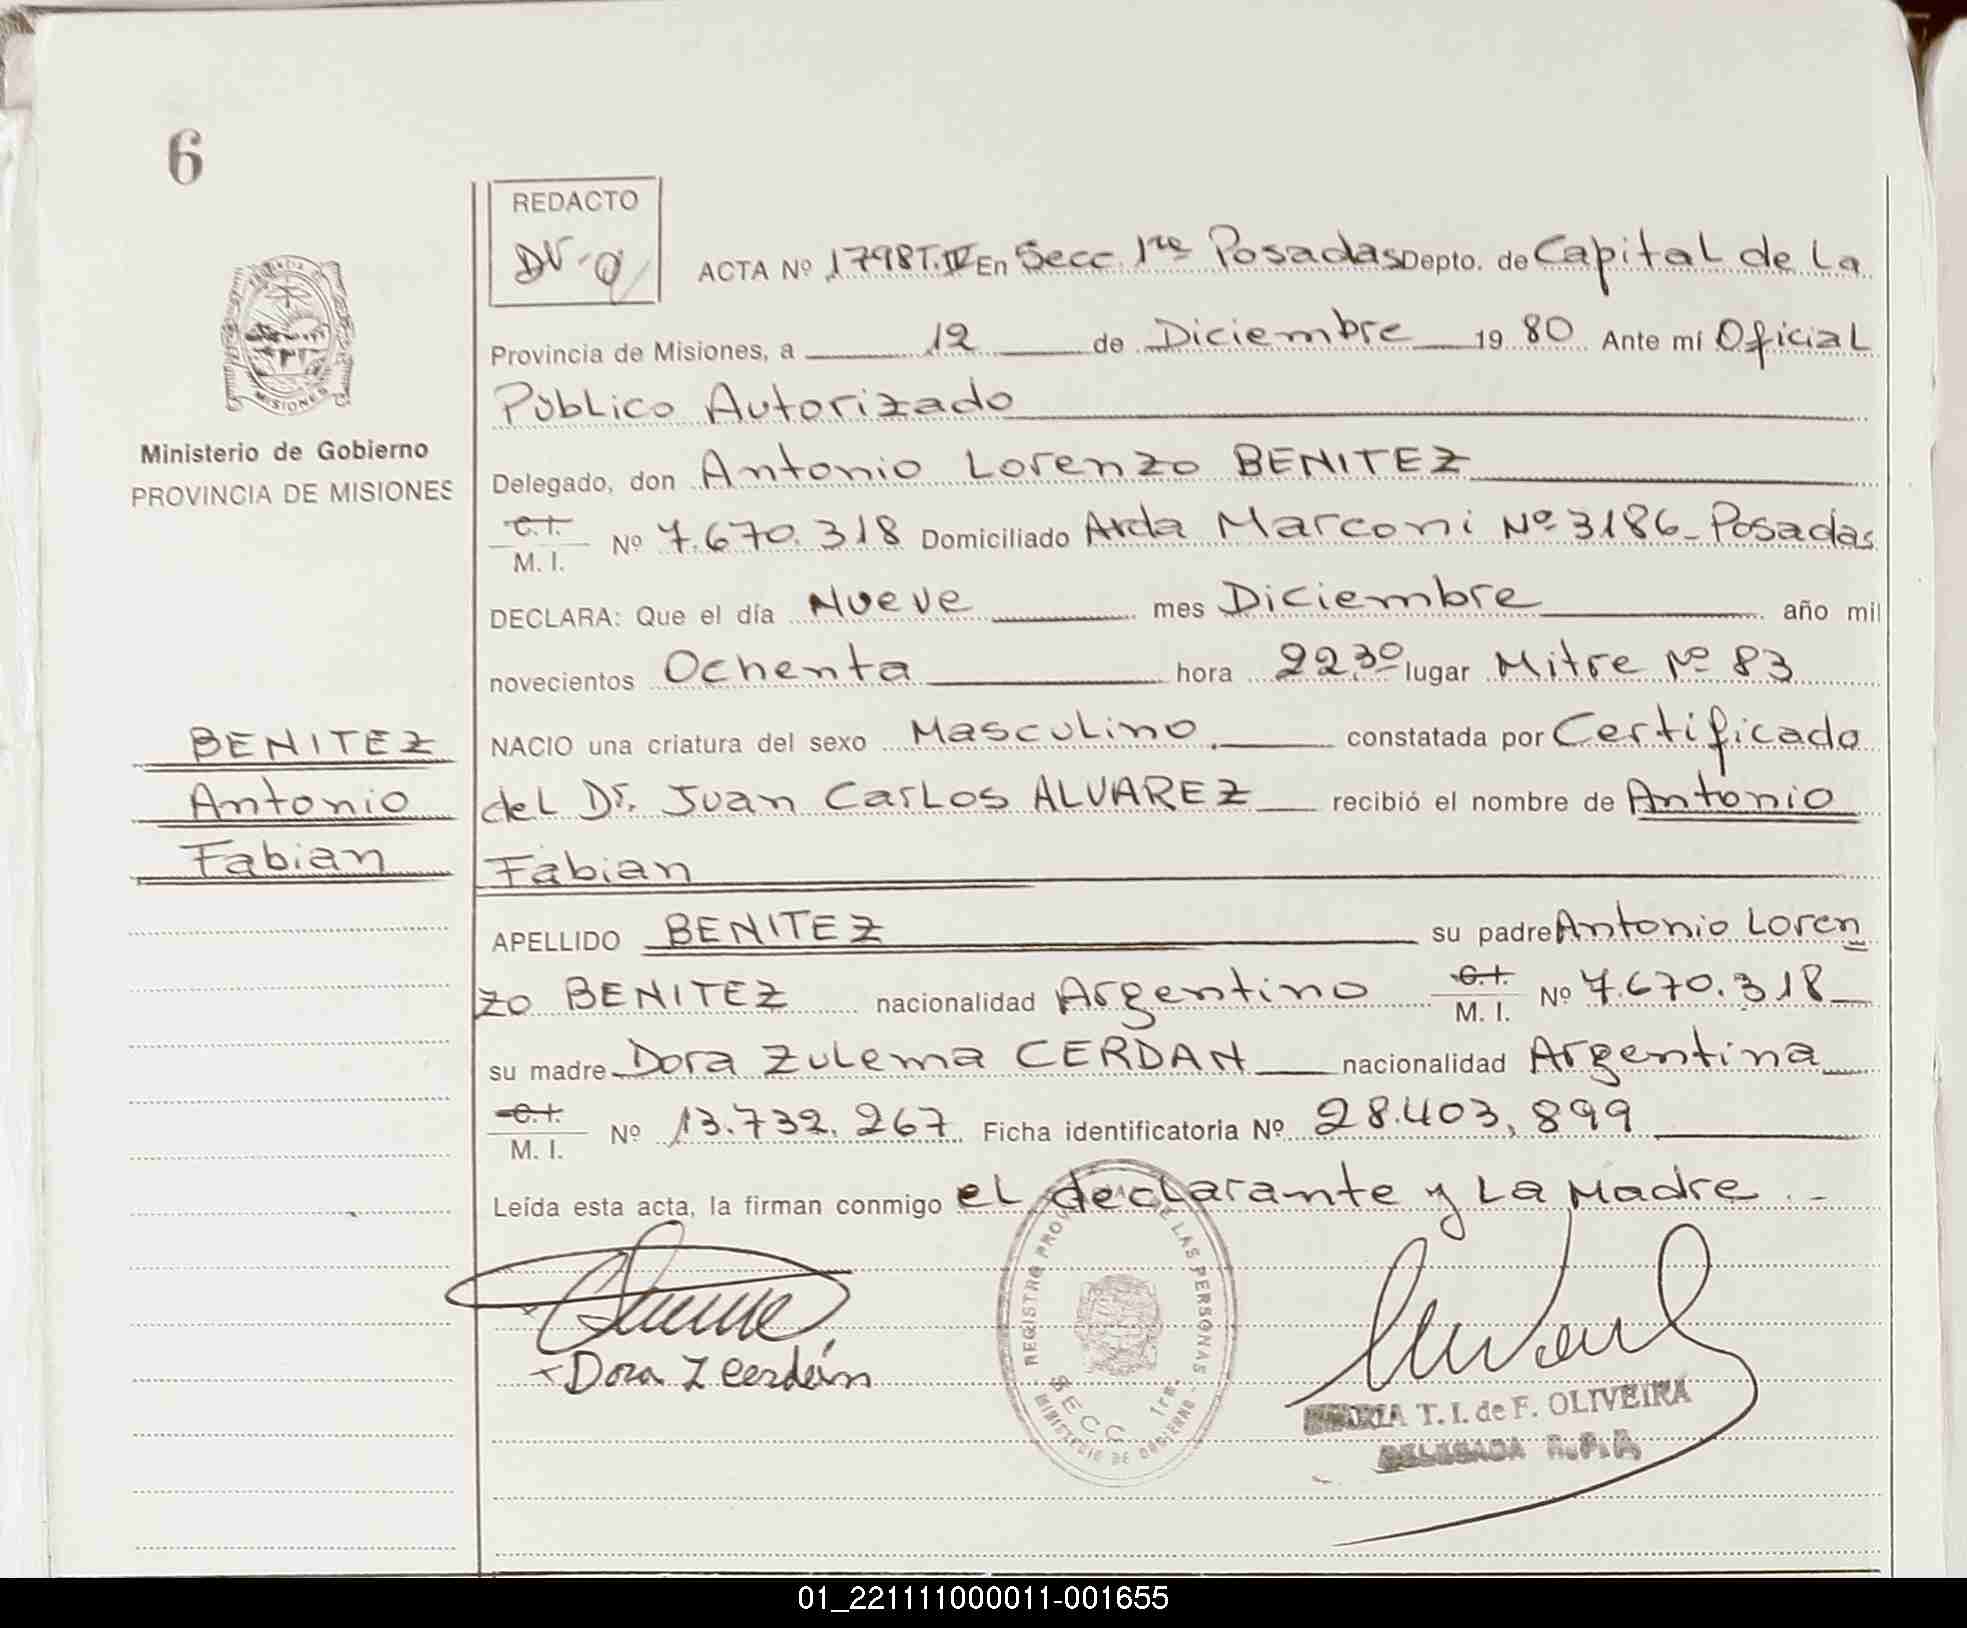 6
REDACTO
ACTA Nº 1798 T. IV En Secc. 1ra Posadas Depto. de Capital de La
Provincia de Misiones, a 12 de Diciembre 19 80 Ante mí Oficial
Público Autorizado
Ministerio de Gobierno
PROVINCIA DE MISIONES
MISIONES
Delegado, don Antonio Lorenzo BENITEZ
C.I. / M. I. Nº 7.670.318 Domiciliado Avda Marconi Nº 3186 - Posadas
DECLARA: Que el día Nueve mes Diciembre año mil
novecientos Ochenta hora 22,30 lugar Mitre Nº 83
NACIO una criatura del sexo Masculino, constatada por Certificado
del Dr. Juan Carlos ALVAREZ recibió el nombre de Antonio
Fabian
BENITEZ
Antonio
Fabian
APELLIDO BENITEZ su padre Antonio Loren
zo BENITEZ nacionalidad Argentino C.I. / M. I. Nº 7.670.318
su madre Dora Zulema CERDAN nacionalidad Argentina
C.I. / M. I. Nº 13.732.267 Ficha identificatoria Nº 28.403,899
Leída esta acta, la firman conmigo el declarante y La Madre . -
Dora Z Cerdán
REGISTRO PRO DE LAS PERSONAS
SECC 1ra.
MINISTERIO DE GOBIERNO
MARIA T. I. de F. OLIVEIRA
DELEGADA R.P.P.
01_221111000011-001655